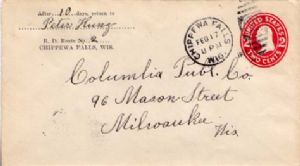 After 10 days, return to
Peter Hung
R. D. Route No. 2
CHIPPEWA FALLS, WIS.
CHIPPEWA FALLS
FEB 17
PM
WIS.
UNITED STATES
TWO CENTS
Columbia Publ. Co.
96 Mason Street
Milwaukee
Wis